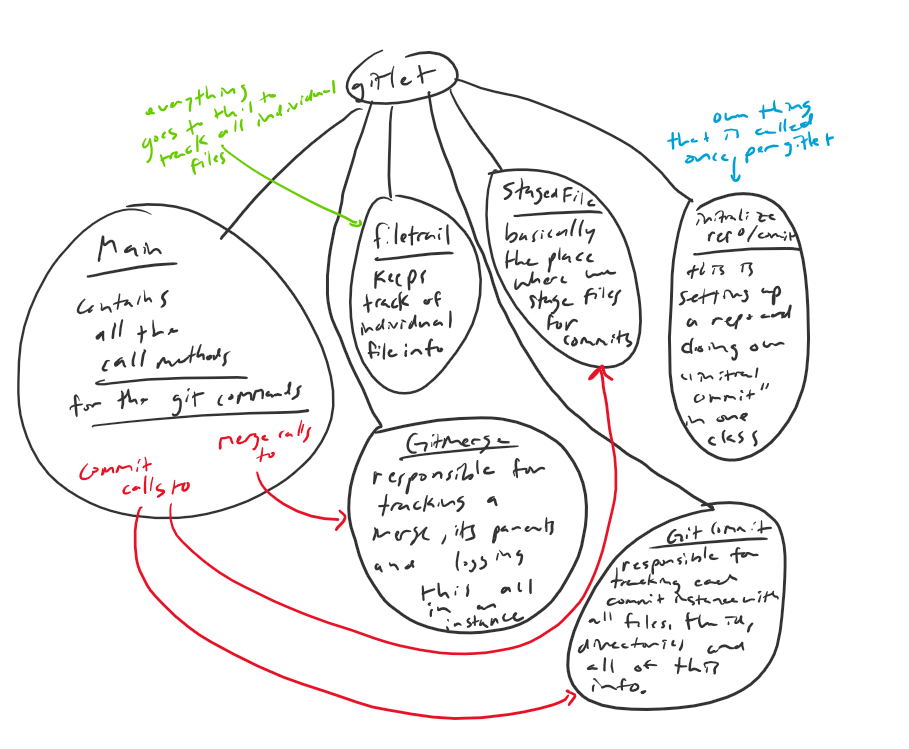 gitlet
everything
goes to this to
track all individual
files
own thing
that is called
once per gitlet
Main
contains
all the
call methods
for the git commands
commit
calls to
merge calls
to
filetrail
keeps
track of
individual
file info
StagedFile
basically
the place
where we
stage files
for
commits
initialize
repo/commit
this is
setting up
a repo and
doing our
"initial
commit"
in one
class
GitMerge
responsible for
tracking a
merge, its parents
and logging
this all
in an
instance
Git Commit
responsible for
tracking each
commit instance with
all files, the ids,
directories and
all of this
info.